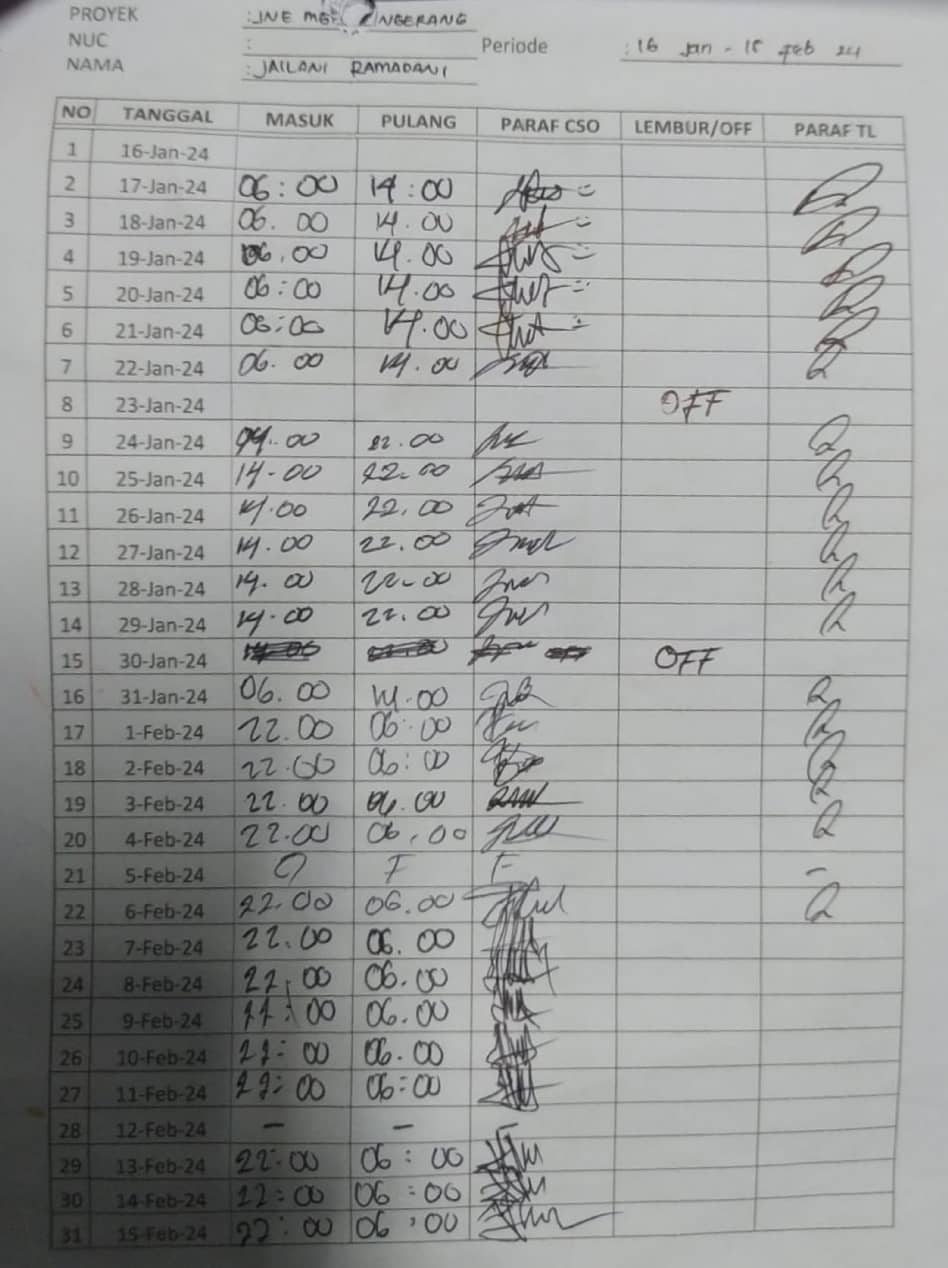 PROYEK : JNE MG NGERANG
NUC : Periode : 16 Jan - 15 feb 24
NAMA : JAILANI RAMADANI
NO TANGGAL MASUK PULANG PARAF CSO LEMBUR/OFF PARAF TL
1 16-Jan-24
2 17-Jan-24 06:00 14:00
3 18-Jan-24 06.00 14.00
4 19-Jan-24 06.00 14.00
5 20-Jan-24 06:00 14.00
6 21-Jan-24 06:00 14.00
7 22-Jan-24 06.00 14.00
8 23-Jan-24 OFF
9 24-Jan-24 14.00 22.00
10 25-Jan-24 14-00 22.00
11 26-Jan-24 14.00 22.00
12 27-Jan-24 14.00 22.00
13 28-Jan-24 14.00 22-00
14 29-Jan-24 14.00 22.00
15 30-Jan-24 OFF
16 31-Jan-24 06.00 14.00
17 1-Feb-24 22.00 06:00
18 2-Feb-24 22.00 06:00
19 3-Feb-24 22.00 06.00
20 4-Feb-24 22.00 06.00
21 5-Feb-24 O F F -
22 6-Feb-24 22.00 06.00
23 7-Feb-24 22.00 06.00
24 8-Feb-24 22:00 06.00
25 9-Feb-24 22:00 06.00
26 10-Feb-24 22:00 06.00
27 11-Feb-24 22:00 06:00
28 12-Feb-24 - - -
29 13-Feb-24 22:00 06:00
30 14-Feb-24 22:00 06:00
31 15-Feb-24 22:00 06:00